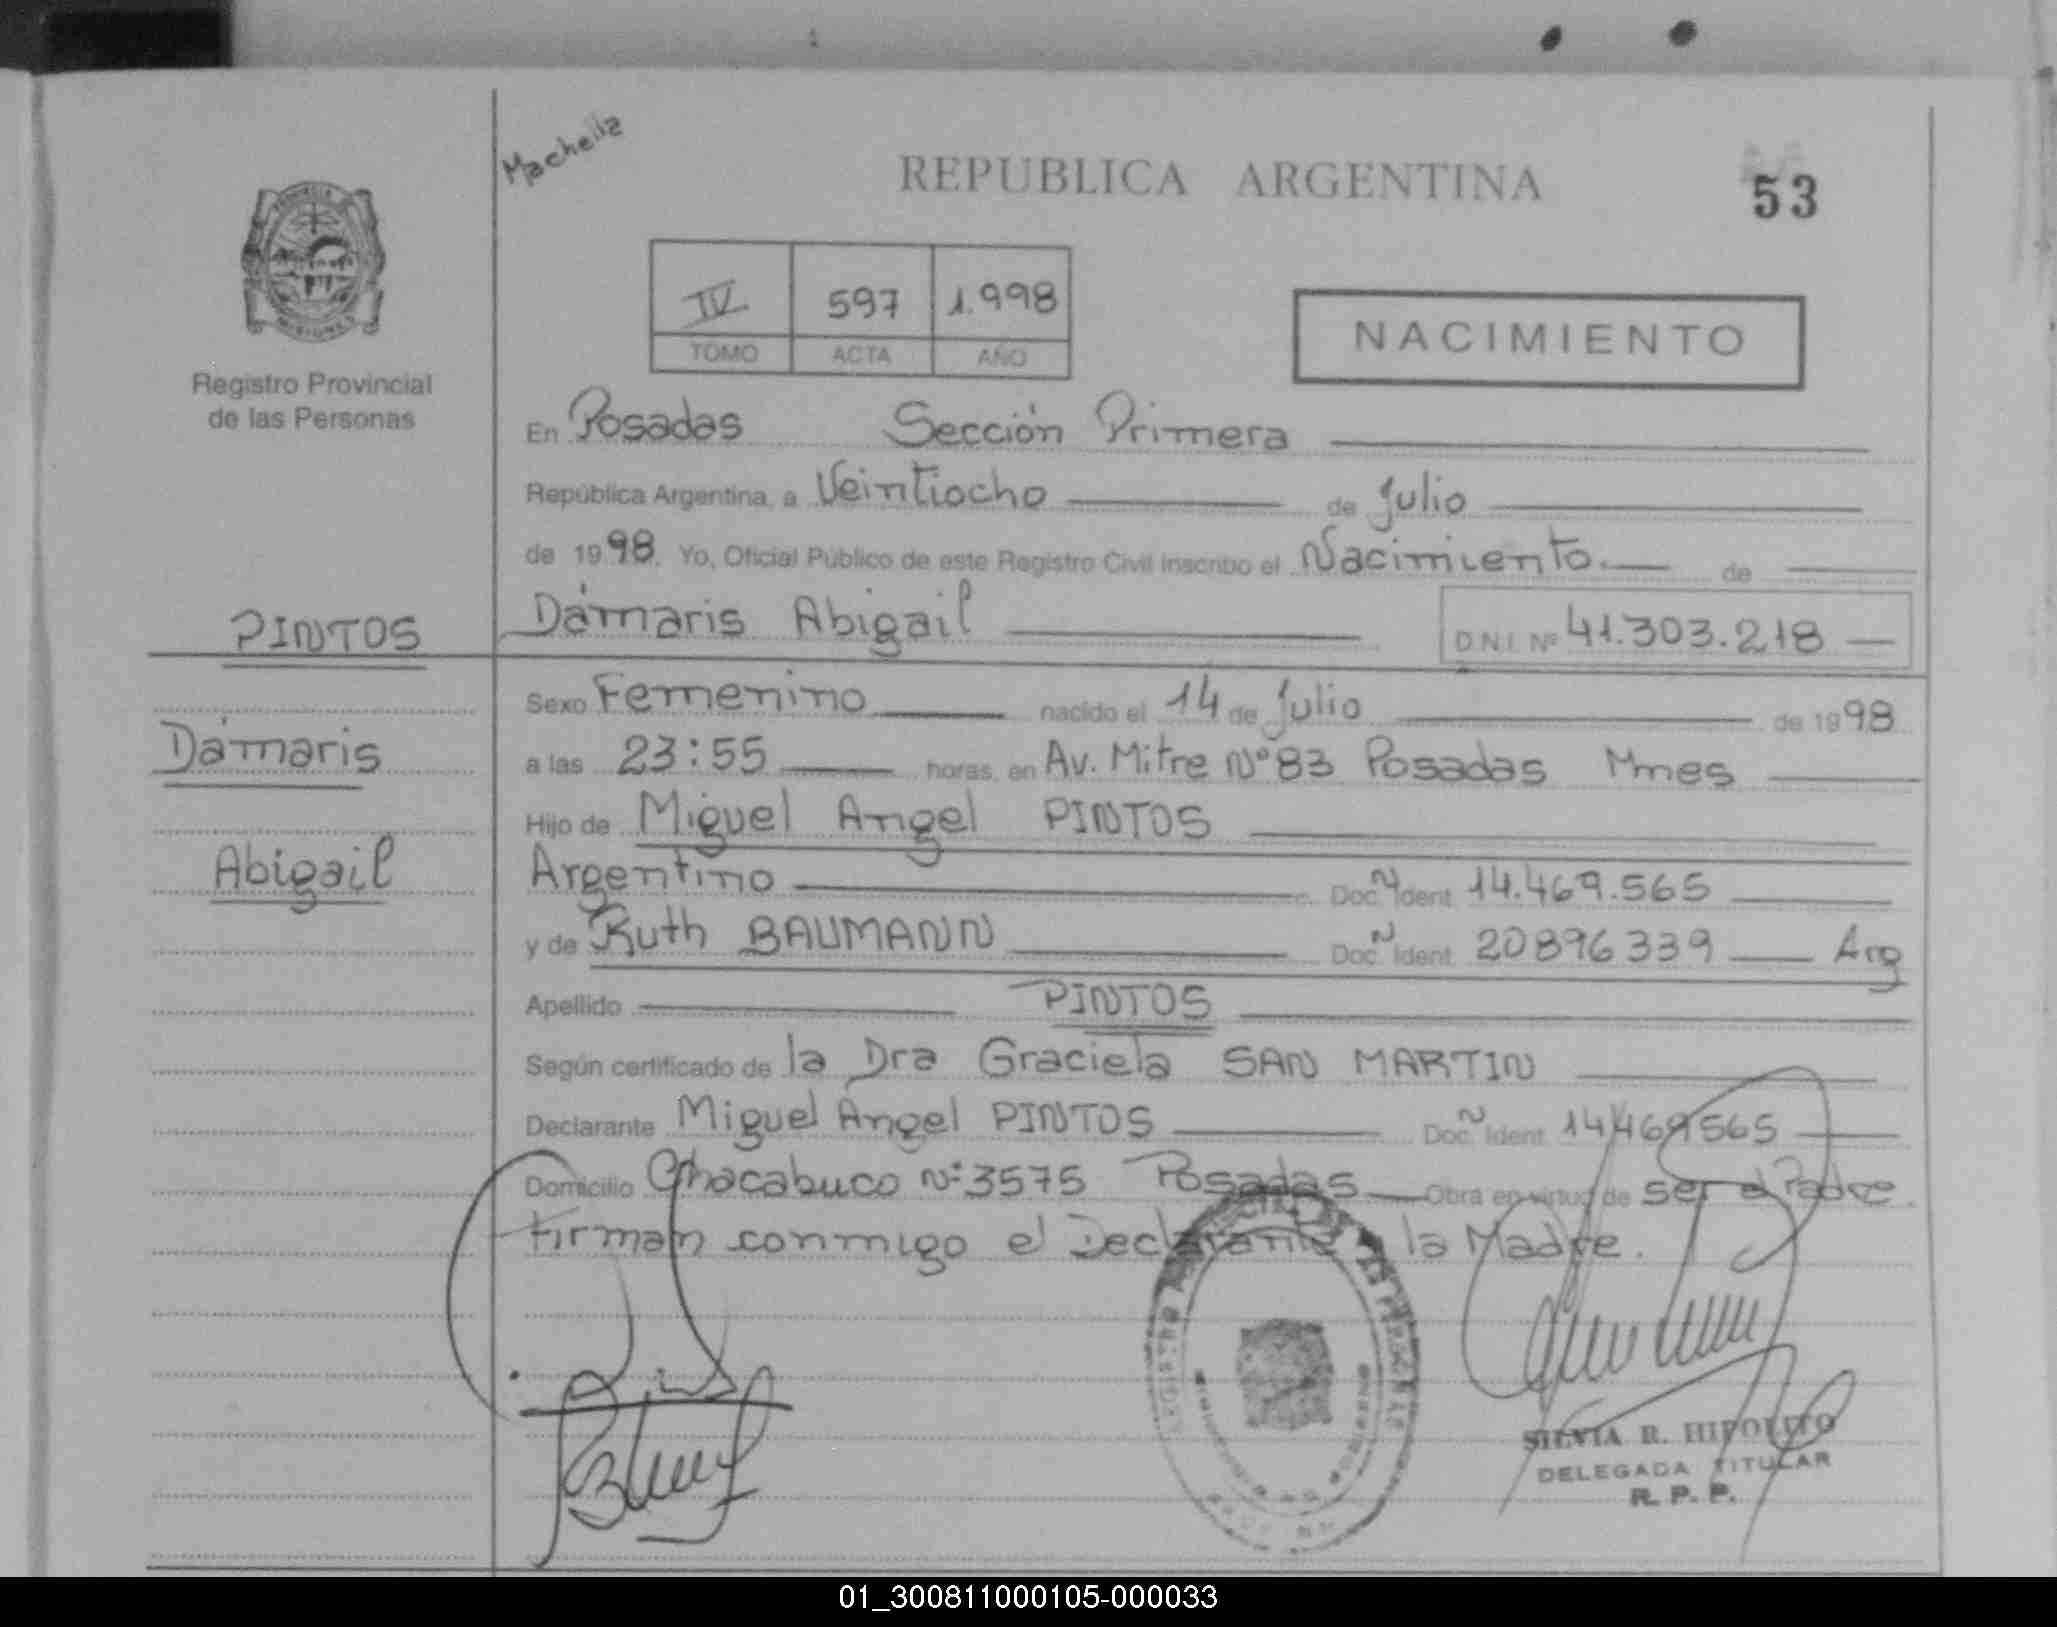 Macheila
REPUBLICA ARGENTINA
53
IV 597 1.998
TOMO ACTA AÑO
NACIMIENTO
MISIONES
Registro Provincial
de las Personas
En Posadas Sección Primera
República Argentina, a Veintiocho de Julio
de 1998. Yo, Oficial Público de este Registro Civil inscribo el Nacimiento. de
PINTOS
Dámaris Abigail D.N.I. Nº 41.303.218
Sexo Femenino nacido el 14 de Julio de 1998
Dámaris
a las 23:55 horas, en Av. Mitre Nº 83 Posadas Mnes
Hijo de Miguel Angel PINTOS
Abigail
Argentino Doc. N Ident 14.469.565
y de Ruth BAUMANN Doc. N Ident 20896339 Arg
Apellido PINTOS
Según certificado de la Dra Graciela SAN MARTIN
Declarante Miguel Angel PINTOS Doc. N Ident 14469565
Domicilio Chacabuco Nº 3575 Posadas Obra en virtud de ser el Padre
Firman conmigo el Declarante y la Madre.
SILVIA R. HIPOLITO
DELEGADA TITULAR
R. P. P.
01_300811000105-000033